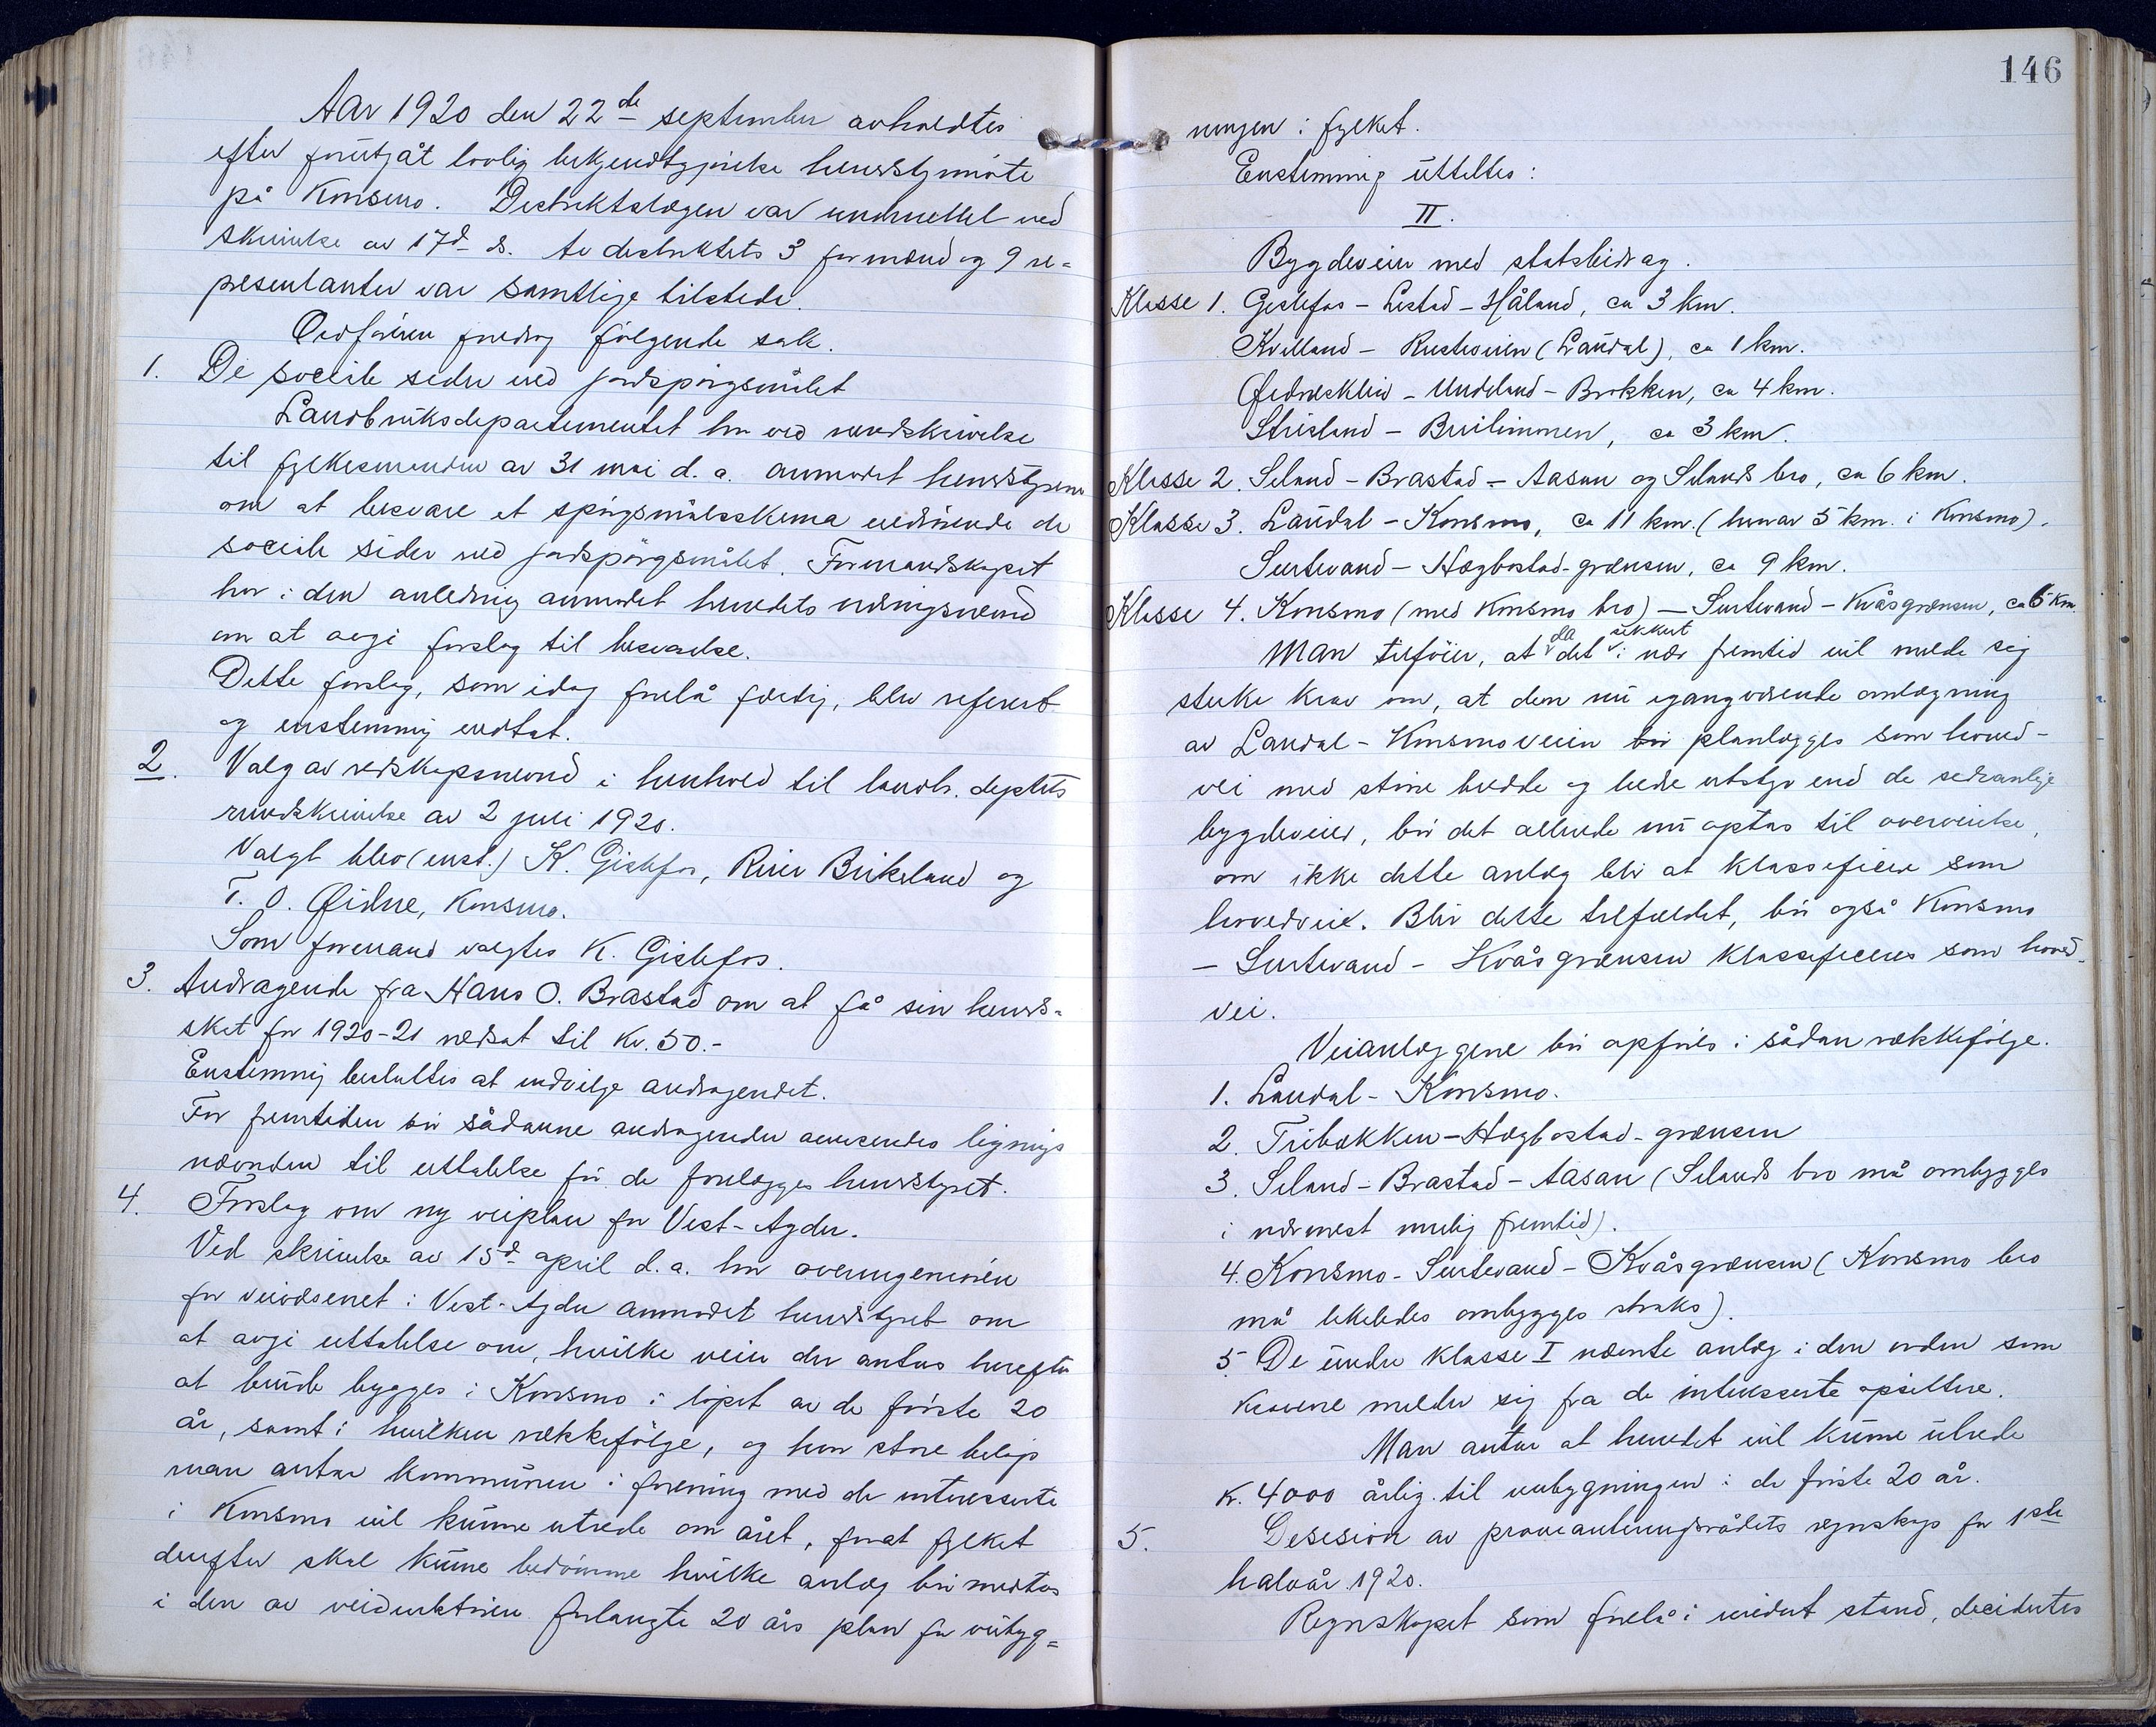 Aar 1920 den 22de september avholdtes
efter forutgåt lovlig bekjendtgjørelse herredsstyrmøte
på Konsmo. Distriktslægen var underrettet ved
skrivelse av 17d ds. Av distriktets 3 formænd og 9 re=
presentanter var samtlige tilstede.
Ordføreren foredrog følgende sak.
1. De sociale sider ved jordspørgsmålet
Landbruksdepartementet har ved rundskrivelse
til fylkesmanden av 31 mai d. a. anmodet herredsstyrene
om at besvare et spørgsmålsskema vedrørende de
sociale sider ved jordspørgsmålet. Formandskapet
har i den anledning anmodet herredets nævnd
om at avgi forslag til besvarelse.
Dette forslag, som idag forelå færdig, blev referert
og enstemmig vedtat.
2. Valg av redskapsnevnd i henhold til landb. deptets
rundskrivelse av 2 juli 1920.
Valgt blev (enst.) K. Gislefos, Reier Birkeland og
T. O. Øidne, Konsmo.
Som formand valgtes K. Gislefos.
3. Andragende fra Hans O. Brastad om at få sin herreds-
skat for 1920-21 nedsat til kr. 50.-
Enstemmig besluttes at indvilge andragendet.
For fremtiden bør sådanne andragender anvendes lignings
nævnden til uttalelse før de forelægges herredsstyret.
4. Forslag om ny veiplan for Vest-Agder.
Ved skrivelse av 15d april d. a. har overingeniøren
for veivæsenet i Vest-Agder anmodet herredsstyret om
at avgi uttalelse om, hvilke veier der antas herefter
at burde bygges i Konsmo i løpet av de første 20
år, samt i hvilken rækkefølge, og hvor store beløp
man antar kommunen i forening med de interesserte
i Konsmo vil kunne utrede om året, forat fylket
derefter skal kunne bedømme hvilke anlæg bør medtas
i den av veidirektøren forlangte 20 års plan for veibyg=
146
ningen i fylket.
Enstemmig uttaltes:
II.
Bygdeveier med statsbidrag.
Klasse 1. Gislefos - Lestad - Håland, ca 3 km.
Kvilland - Rusteveien (Laudal), ca 1 km.
Undeland - Brokken, ca 4 km.
Strisland - ca 3 km.
Klasse 2. Seland - Brastad - Aasan og Selands bro, ca 6 km.
Klasse 3. Laudal - Konsmo, ca 11 km. (herav 5 km. i Konsmo).
Surtevand - Hægbostad-grænsen, ca 9 km.
Klasse 4. Konsmo (med Konsmo bro) - Surtevand - Kvåsgrænsen, ca 6 km.
Man tilføier, at da det sikkert i nær fremtid vil melde sig
sterke krav om, at den nu igangværende omlægning
av Laudal - Konsmoveien bør planlægges som hoved-
vei med større bredde og bedre utstyr end de sedvanlige
bygdeveier, bør det allerede nu optas til overveielse,
om ikke dette anlæg blir at klassificere som
hovedvei. Blir dette tilfældet, bør også Konsmo
- Surtevand - Kvåsgrænsen klassificeres som hoved-
vei.
Veianlæggene bør opføres i sådan rækkefølge.
1. Laudal - Konsmo.
2. Tribækken - Hægbostad-grænsen
3. Seland - Brastad - Aasan (Selands bro må ombygges
i nærmest mulig fremtid).
4. Konsmo - Surtevand - Kvåsgrænsen (Konsmo bro
må likeledes ombygges straks).
5. De under klasse I nævnte anlæg i den orden som
kravene melder sig fra de interesserte opsittere.
Man antar at herredet vil kunne utrede
kr. 4000 årlig til veibygningen i de første 20 år.
5. Desision av provianteringsrådets regnskap for 1ste
halvår 1920.
Regnskapet som forelå i revidert stand, decidertes